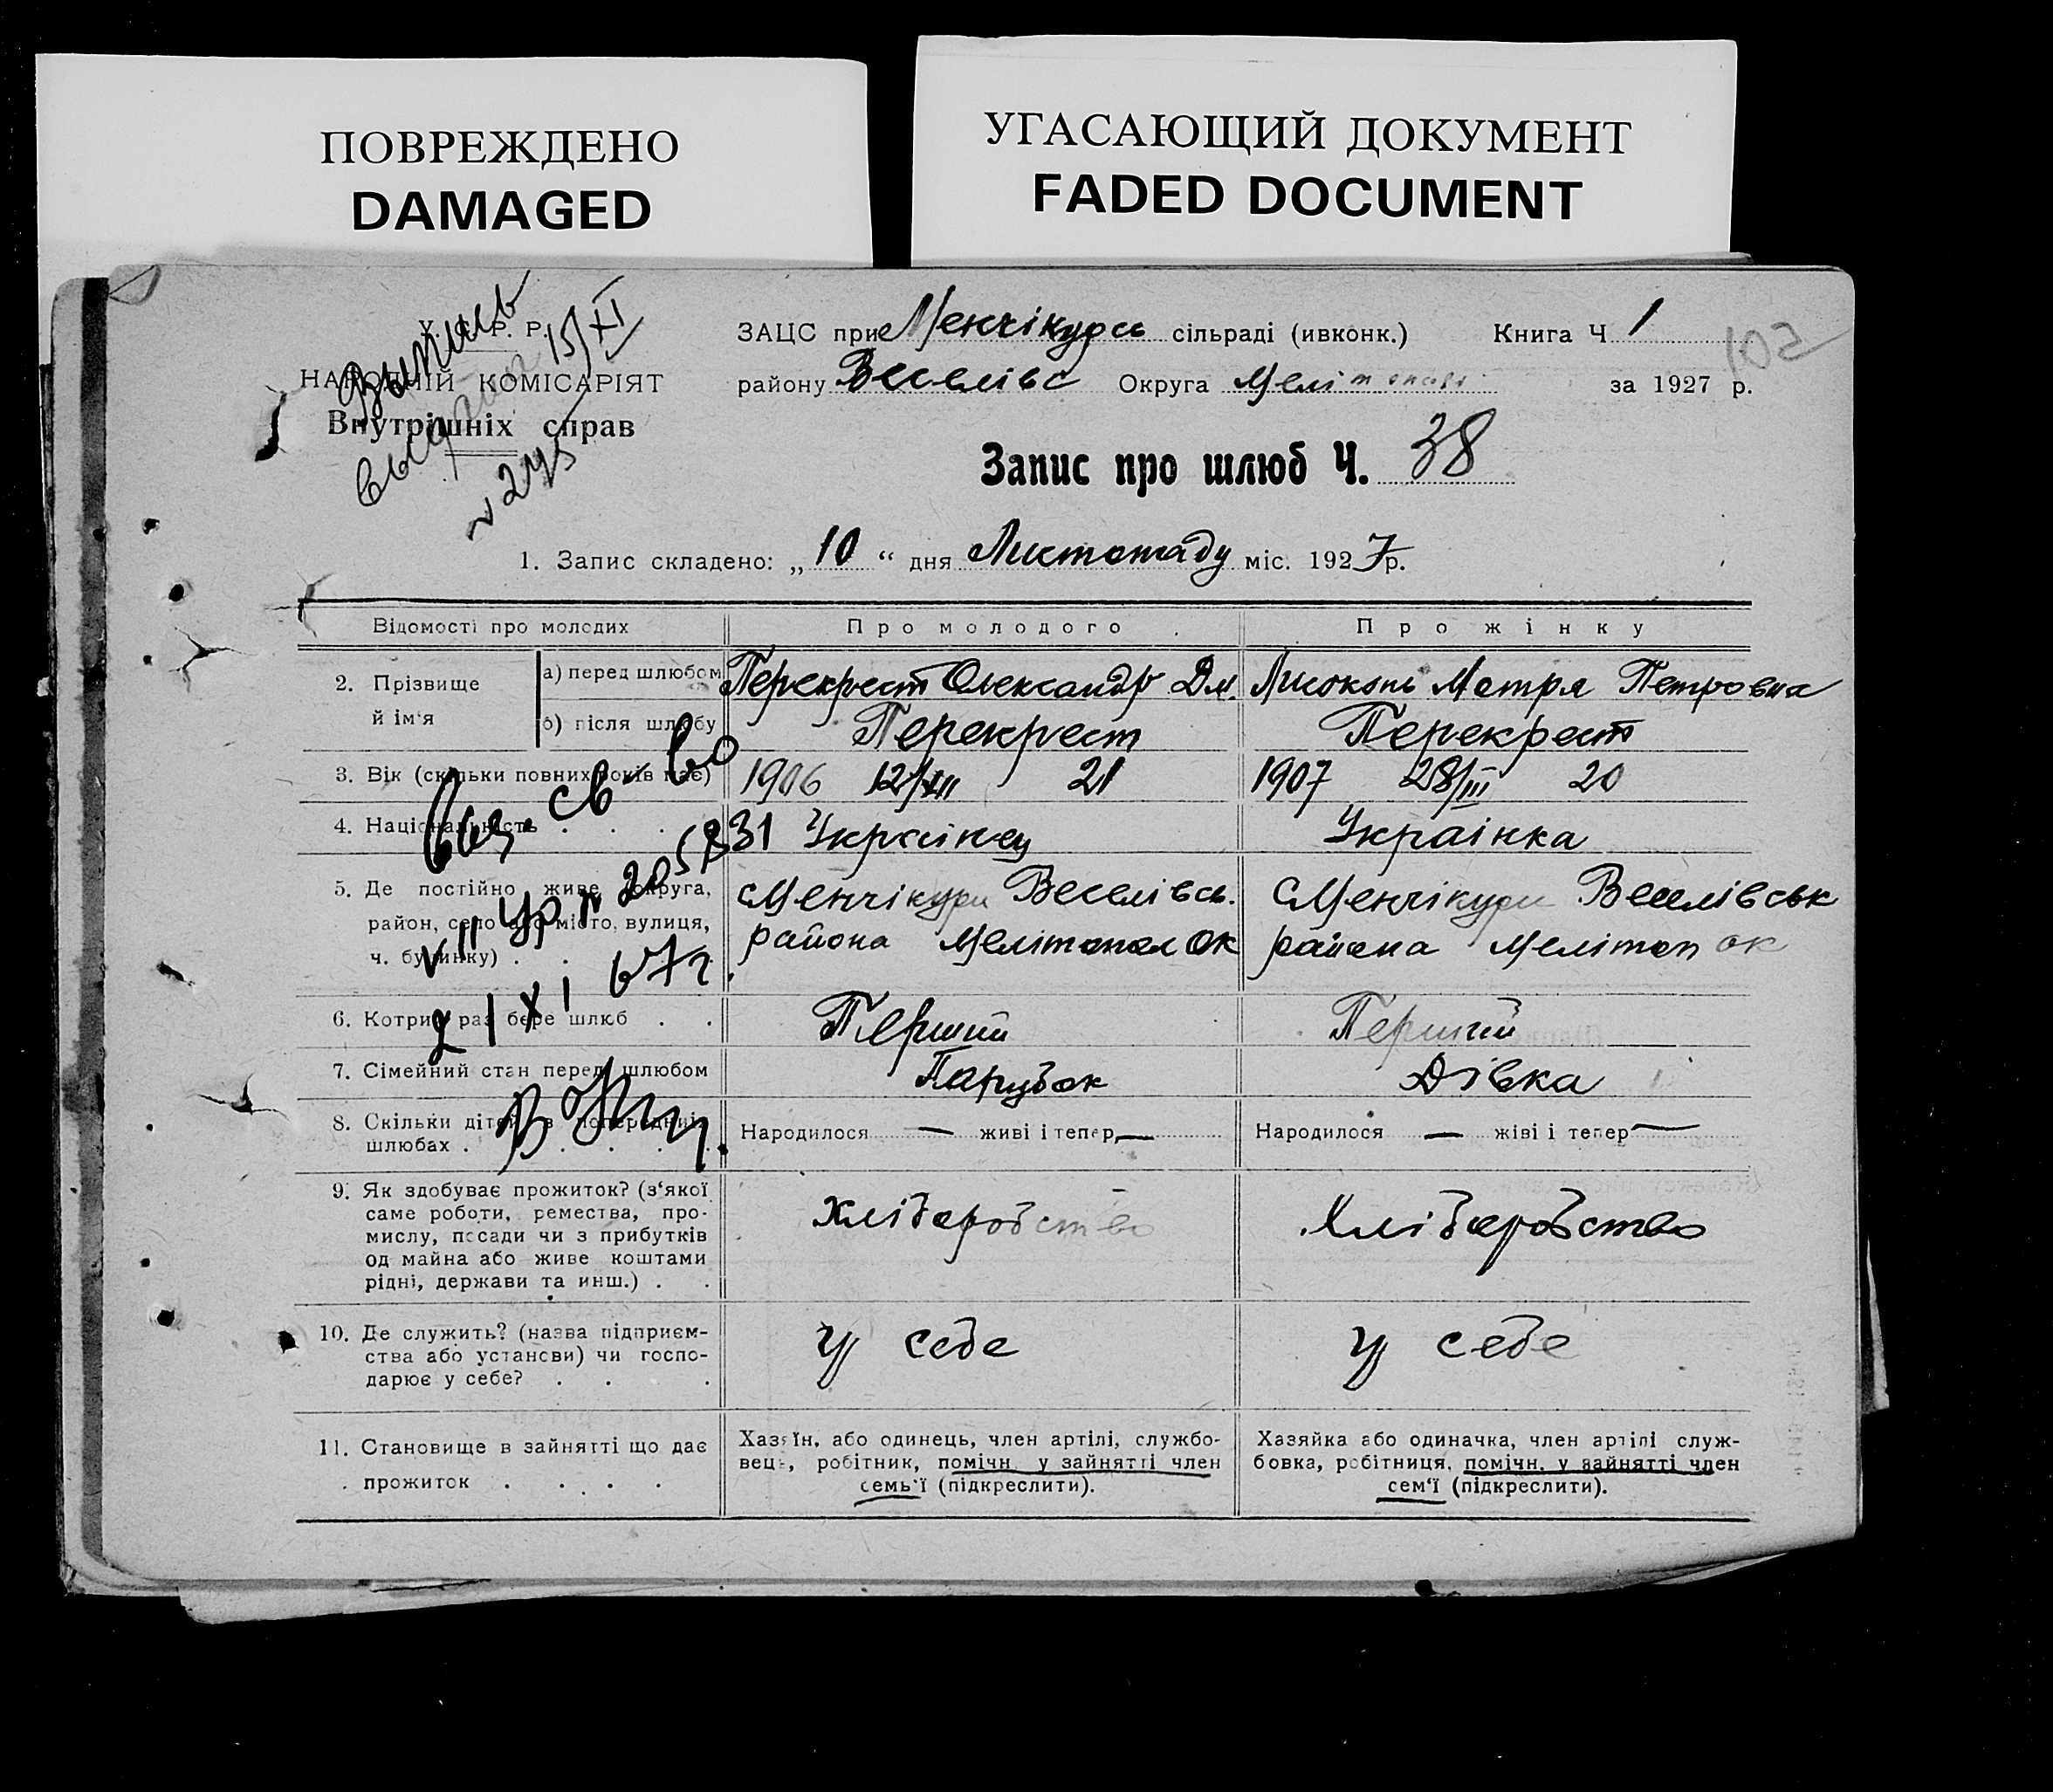 ПОВРЕЖДЕНО
DAMAGED
УГАСАЮЩИЙ ДОКУМЕНТ
FADED DOCUMENT
У. С. Р. Р.
НАРОДНІЙ КОМІСАРІЯТ
Внутрішніх справ
Выпись
15/XI
ЗАЦС при Менчікурсь сільраді (ивконк.) Книга Ч 1
району Веселівс Округа Меліт за 1927 р.
Запис про шлюб Ч. 38
1. Запис складено: „ 10 “ дня Листопаду міс. 1927 р.
Відомості про молодих
Про молодого
Про жінку
2. Прізвище й ім'я
а) перед шлюбом
Перекрест Олександр Дм.
Лисоконь Мотря Петровна
б) після шлюбу
Перекрест
Перекрест
3. Вік (скільки повних років має)
1906 12/XII 21
1907 28/III 20
4. Національність . . .
Українец
Українка
5. Де постійно живе округа,
район, село або місто, вулиця,
ч. будинку) . . .
Менчікури Веселівсь.
района Мелітопол ок
Менчікури Веселівськ
района Мелітоп ок
6. Котрий раз бере шлюб . .
Перший
Перший
7. Сімейний стан перед шлюбом
Парубок
Дівка
8. Скільки дітей з попередніх
шлюбах . . . . .
Народилося — живі і тепер —
Народилося — жіві і тепер —
9. Як здобуває прожиток? (з'якої
саме роботи, ремества, про-
мислу, посади чи з прибутків
од майна або живе коштами
рідні, держави та инш.) . .
Хліборобство
Хліборобство
10. Де служить? (назва підприєм-
ства або установи) чи госпо-
дарює у себе? . . .
у себе
у себе
11. Становище в зайнятті що дає
прожиток . . . . .
Хазяїн, або одинець, член артілі, службо-
вець, робітник, помічн. у зайнятті член
семь'ї (підкреслити).
Хазяйка або одиначка, член артілі служ-
бовка, робітниця, помічн. у зайнятті член
сем'ї (підкреслити).